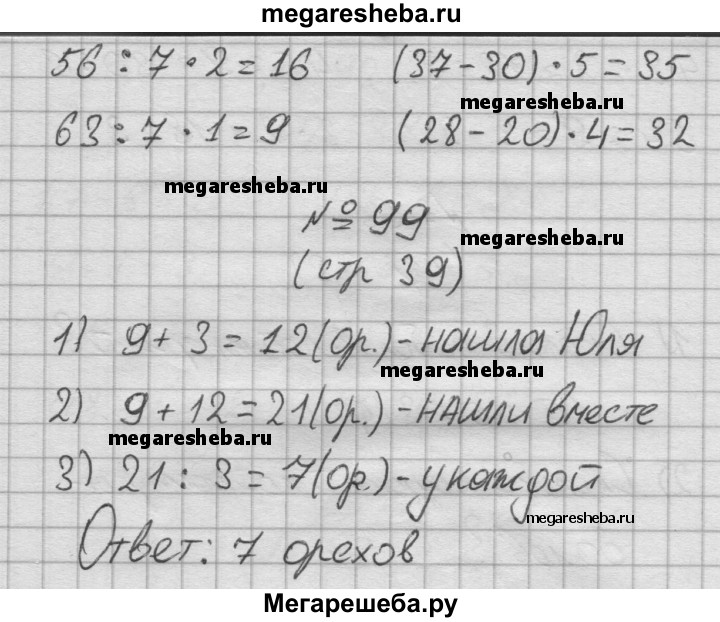 megaresheba.ru
56 : 7 · 2 = 16 (37 - 30) · 5 = 35
megaresheba.ru
63 : 7 · 1 = 9 (28 - 20) · 4 = 32
megaresheba.ru
№ 99
megaresheba.ru
(стр 39)
1) 9 + 3 = 12 (ор.) - нашла Юля
megaresheba.ru
2) 9 + 12 = 21 (ор.) - нашли вместе
megaresheba.ru
3) 21 : 3 = 7 (ор.) - у каждой
megaresheba.ru
Ответ: 7 орехов
Мегарешеба.ру